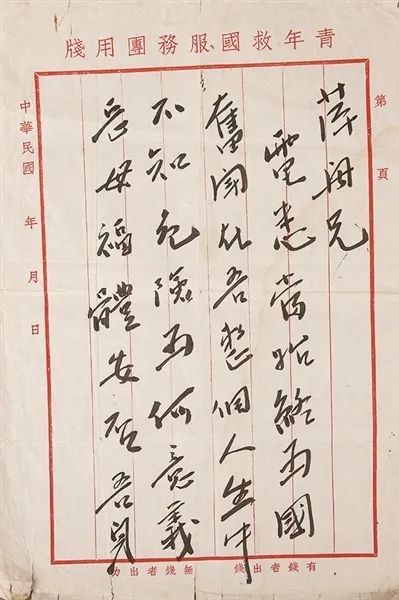 青年救國、服務團用牋
第 頁
萍舟兄
電悉當始終為國
奮鬥 吾整個人生中
不知危險為何意義
母福體安否吾兒
中華民國 年 月 日
有錢者出錢 無錢者出力